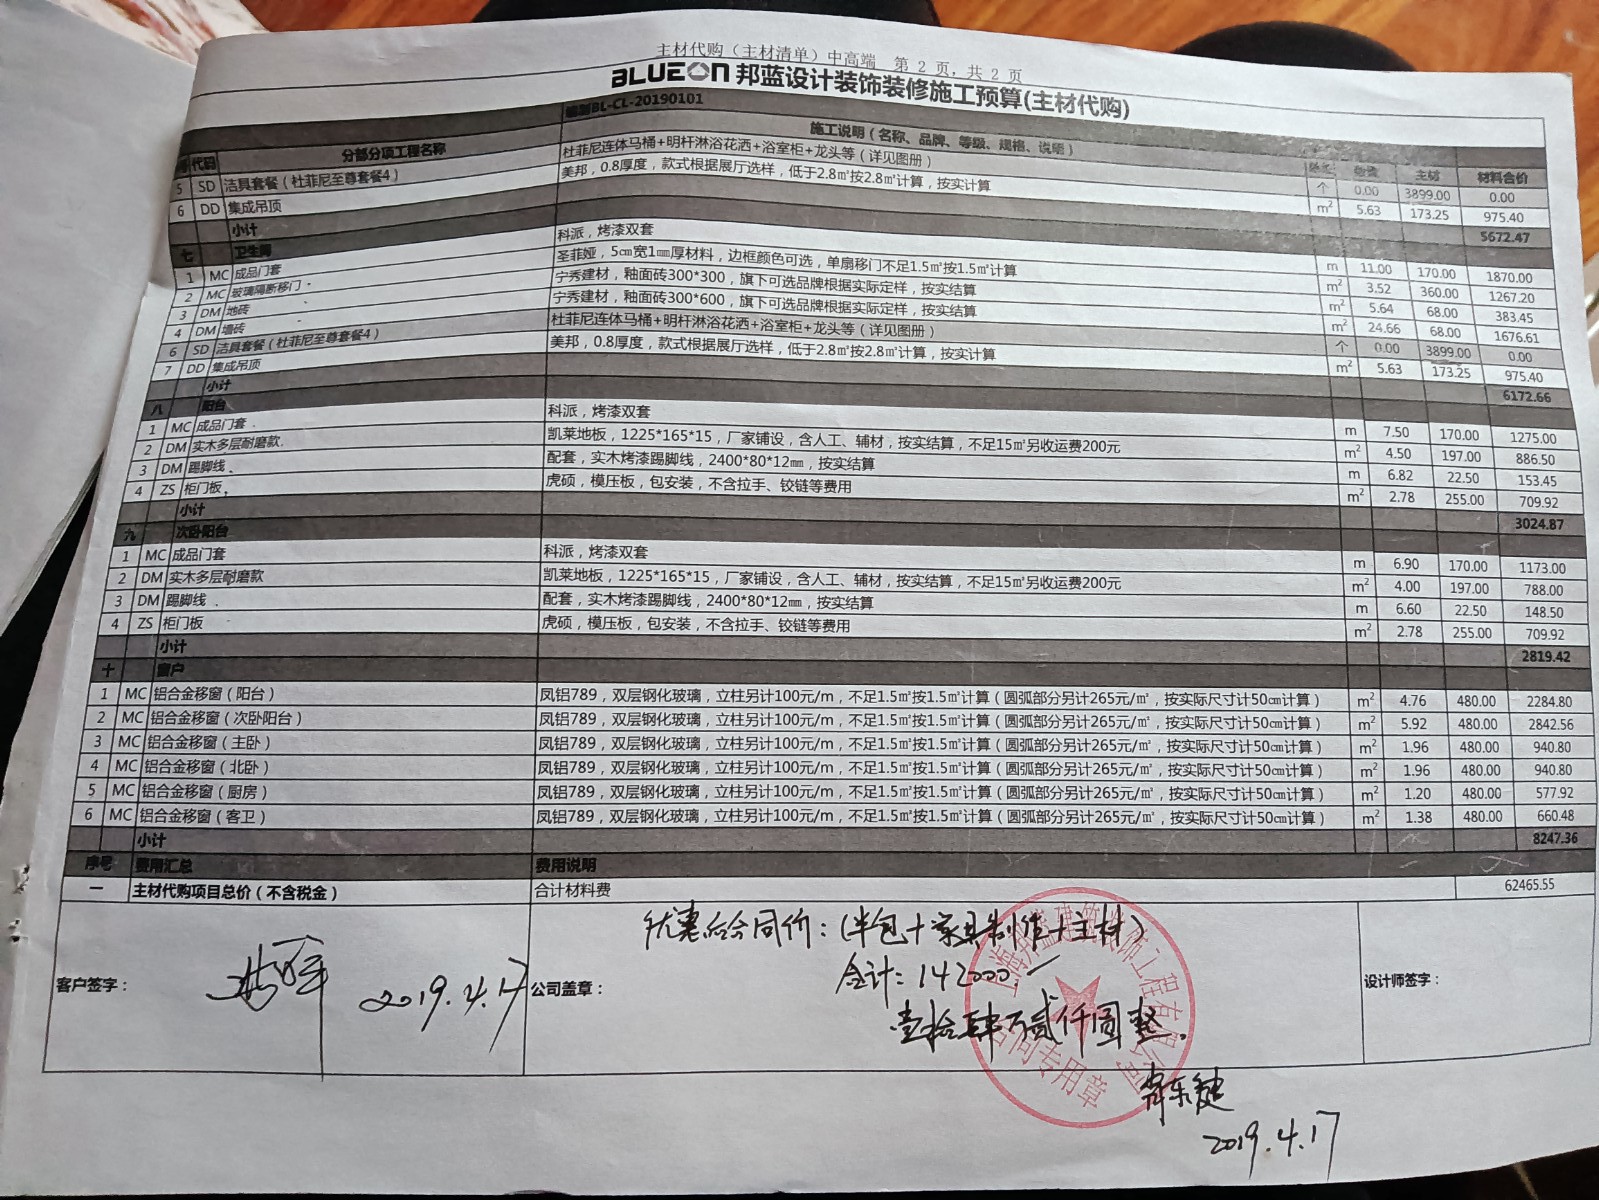 主材代购（主材清单）中高端 第 2 页，共 2 页
BLUEON 邦蓝设计装饰装修施工预算(主材代购)
BL-CL-20190101
代码 分部分项工程名称 施工说明（名称、品牌、等级、规格、说明） 主材 材料合价
5 SD 洁具套餐（杜菲尼至尊套餐4） 杜菲尼连体马桶+明杆淋浴花洒+浴室柜+龙头等（详见图册） 个 0.00 3899.00 0.00
6 DD 集成吊顶 美邦，0.8厚度，款式根据展厅选样，低于2.8㎡按2.8㎡计算，按实计算 m² 5.63 173.25 975.40
小计 5672.47
七 卫生间
1 MC 成品门套 科派，烤漆双套 m 11.00 170.00 1870.00
2 MC 玻璃隔断移门 圣菲娅，5㎝宽1㎜厚材料，边框颜色可选，单扇移门不足1.5㎡按1.5㎡计算 m² 3.52 360.00 1267.20
3 DM 地砖 宁秀建材，釉面砖300*300，旗下可选品牌根据实际定样，按实结算 m² 5.64 68.00 383.45
4 DM 墙砖 宁秀建材，釉面砖300*600，旗下可选品牌根据实际定样，按实结算 m² 24.66 68.00 1676.61
6 SD 洁具套餐（杜菲尼至尊套餐4） 杜菲尼连体马桶+明杆淋浴花洒+浴室柜+龙头等（详见图册） 个 0.00 3899.00 0.00
7 DD 集成吊顶 美邦，0.8厚度，款式根据展厅选样，低于2.8㎡按2.8㎡计算，按实计算 m² 5.63 173.25 975.40
小计 6172.66
八 阳台
1 MC 成品门套 科派，烤漆双套 m 7.50 170.00 1275.00
2 DM 实木多层耐磨款 凯莱地板，1225*165*15，厂家铺设，含人工、辅材，按实结算，不足15㎡另收运费200元 m² 4.50 197.00 886.50
3 DM 踢脚线 配套，实木烤漆踢脚线，2400*80*12㎜，按实结算 m 6.82 22.50 153.45
4 ZS 柜门板 虎硕，模压板，包安装，不含拉手、铰链等费用 m² 2.78 255.00 709.92
小计 3024.87
九 次卧阳台
1 MC 成品门套 科派，烤漆双套 m 6.90 170.00 1173.00
2 DM 实木多层耐磨款 凯莱地板，1225*165*15，厂家铺设，含人工、辅材，按实结算，不足15㎡另收运费200元 m² 4.00 197.00 788.00
3 DM 踢脚线 配套，实木烤漆踢脚线，2400*80*12㎜，按实结算 m 6.60 22.50 148.50
4 ZS 柜门板 虎硕，模压板，包安装，不含拉手、铰链等费用 m² 2.78 255.00 709.92
小计 2819.42
十 窗户
1 MC 铝合金移窗（阳台） 凤铝789，双层钢化玻璃，立柱另计100元/m，不足1.5㎡按1.5㎡计算（圆弧部分另计265元/㎡，按实际尺寸计50㎝计算） m² 4.76 480.00 2284.80
2 MC 铝合金移窗（次卧阳台） 凤铝789，双层钢化玻璃，立柱另计100元/m，不足1.5㎡按1.5㎡计算（圆弧部分另计265元/㎡，按实际尺寸计50㎝计算） m² 5.92 480.00 2842.56
3 MC 铝合金移窗（主卧） 凤铝789，双层钢化玻璃，立柱另计100元/m，不足1.5㎡按1.5㎡计算（圆弧部分另计265元/㎡，按实际尺寸计50㎝计算） m² 1.96 480.00 940.80
4 MC 铝合金移窗（北卧） 凤铝789，双层钢化玻璃，立柱另计100元/m，不足1.5㎡按1.5㎡计算（圆弧部分另计265元/㎡，按实际尺寸计50㎝计算） m² 1.96 480.00 940.80
5 MC 铝合金移窗（厨房） 凤铝789，双层钢化玻璃，立柱另计100元/m，不足1.5㎡按1.5㎡计算（圆弧部分另计265元/㎡，按实际尺寸计50㎝计算） m² 1.20 480.00 577.92
6 MC 铝合金移窗（客卫） 凤铝789，双层钢化玻璃，立柱另计100元/m，不足1.5㎡按1.5㎡计算（圆弧部分另计265元/㎡，按实际尺寸计50㎝计算） m² 1.38 480.00 660.48
小计 8247.36
序号 费用汇总 费用说明
一 主材代购项目总价（不含税金） 合计材料费 62465.55
优惠后合同价：（半包+家具制作+主材）
合计：142000.
壹拾肆万贰仟圆整.
客户签字： 2019.4.17 公司盖章： 设计师签字：
合同专用章
2019.4.17